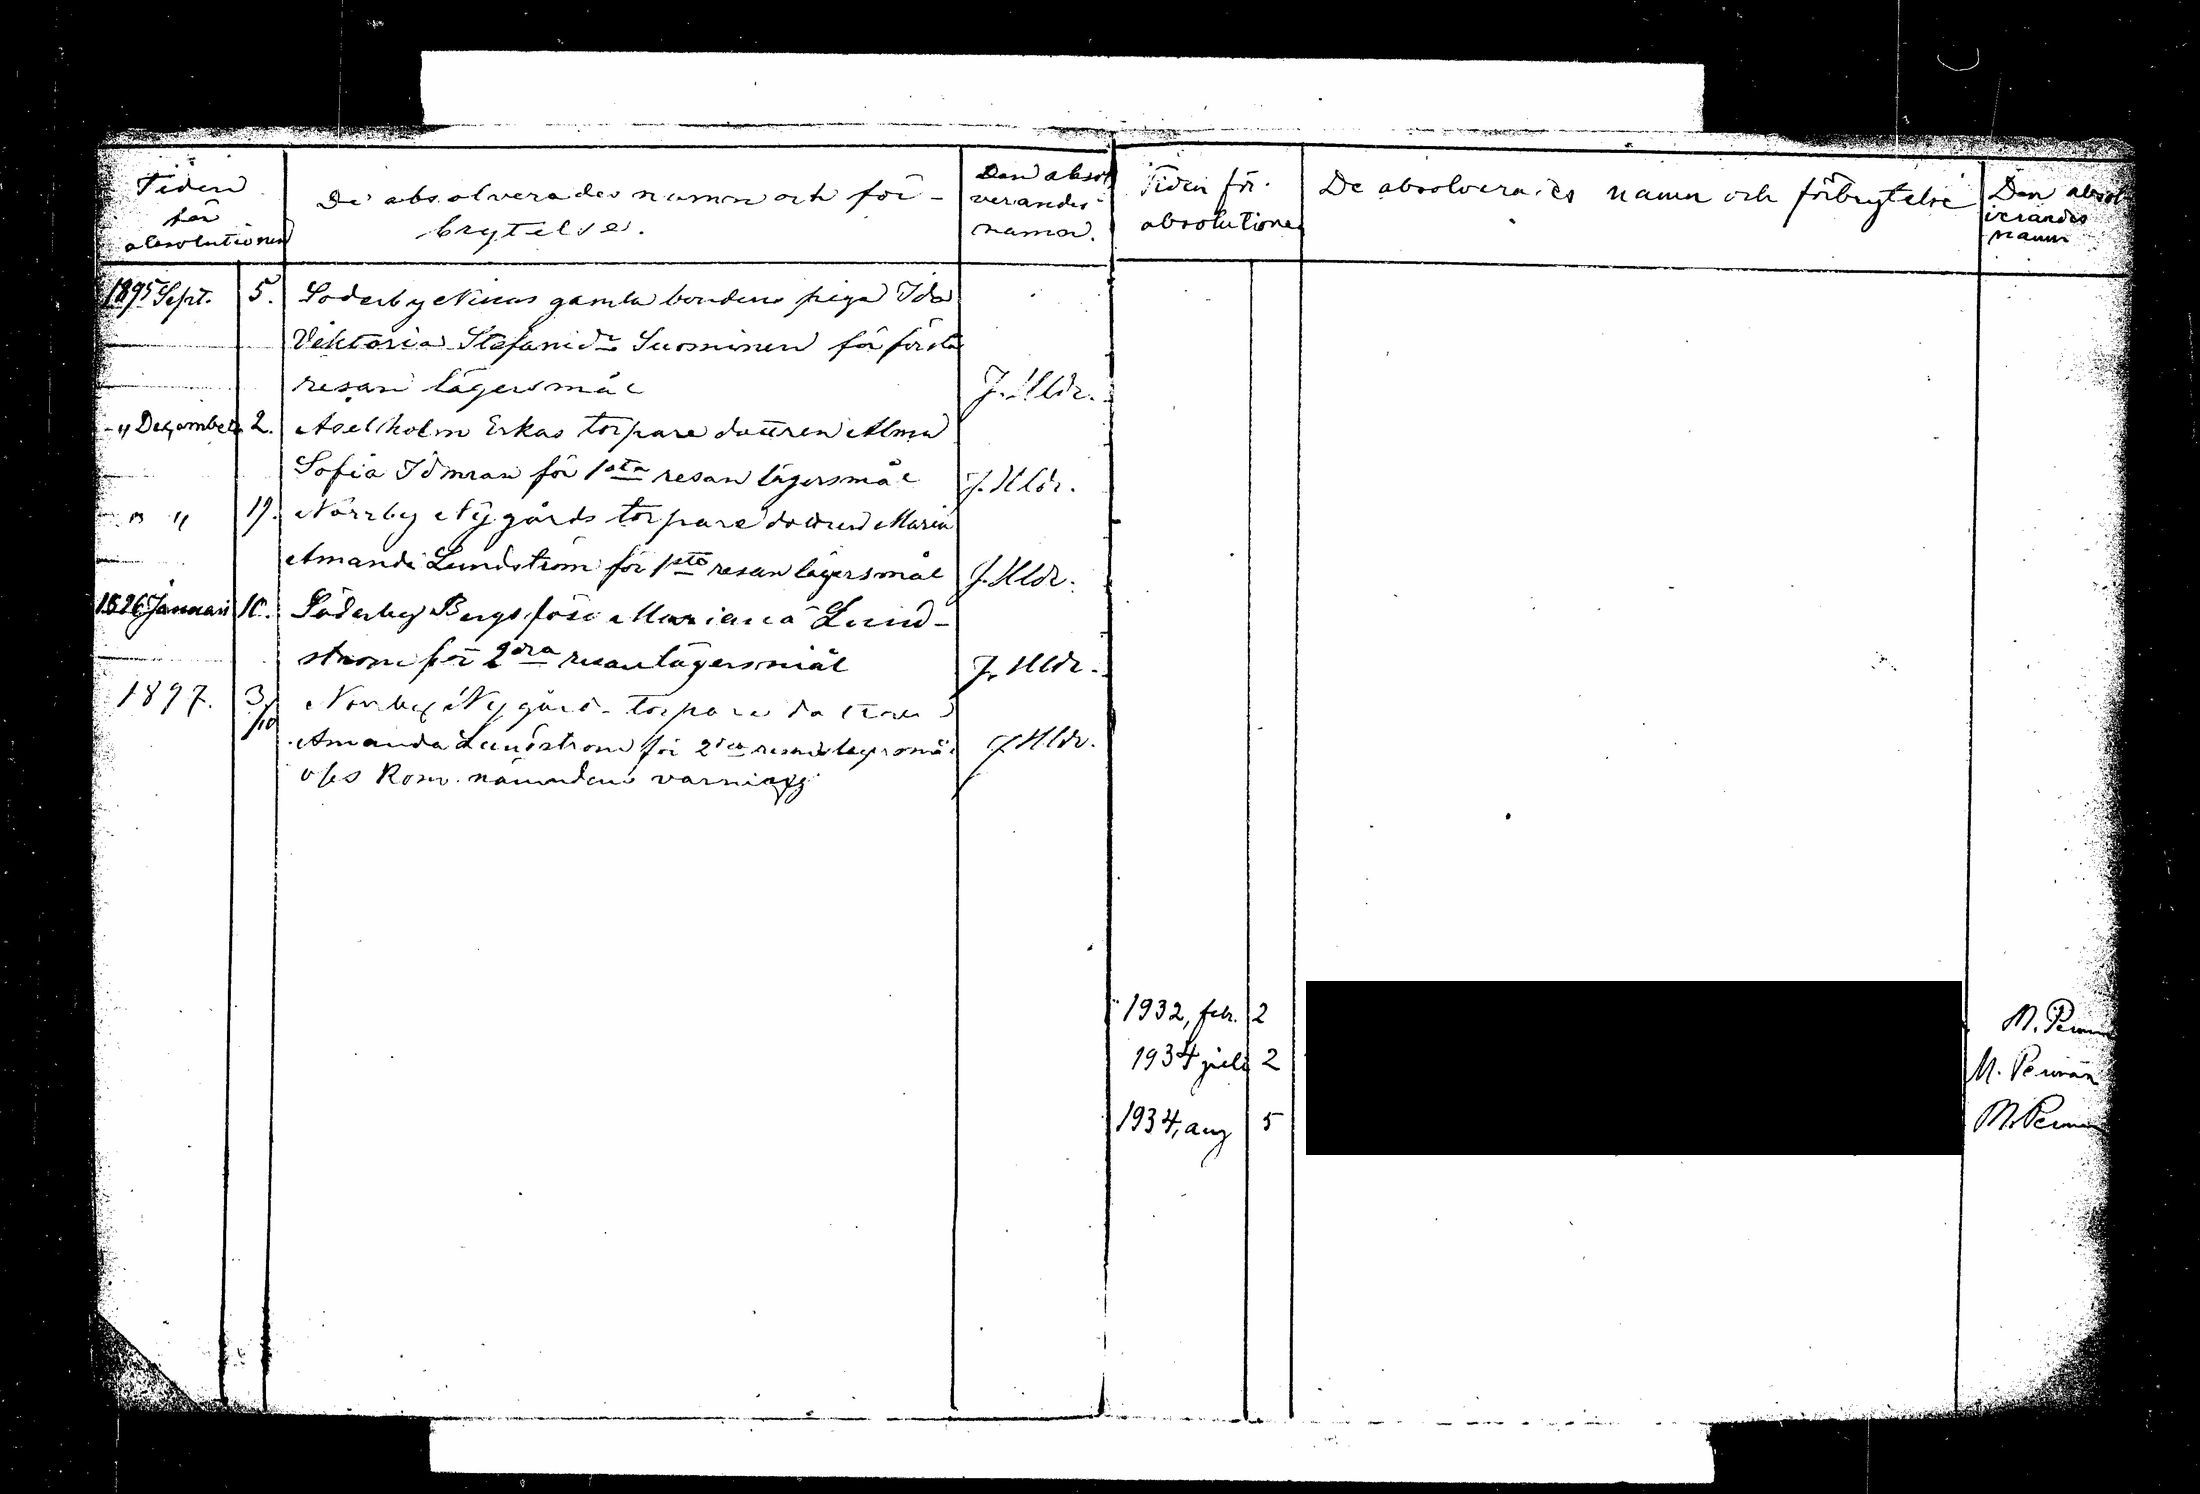 Tiden
för
absolutionen
De absolverades namn och för-
brytelse.
Den absol
verandes
namn.
1895 Sept. 5. Söderby Nisus gamla bondens piga Ida
Viktoria Stefanidr Suominen för första
resan lägersmål
J. Hldr.
" December 2. Aselholm Erkas torpare dottren Alma
Sofia Idman för 1sta resan lägersmål J. Hldr.
" " 19. Norrby Nygårds torpare dottren Maria
Amanda Lundström för 1sta resan lägersmål J. Hldr.
1896 Januari Söderby Bergs Mariana Lund-
ström för 2dra resan lägersmål J. Hldr.
1897. 3/10 Norrby Nygårds torpare dottren
Amanda Lundström för 2dra resans lägersmål J Hldr.
varning
Tiden för
absolutionen
De absolverades namn och förbrytelse
Den absol
verandes
namn
1932, febr. 2 M. Perman
1934 juli 2 M. Perman
1934, aug 5 M. Perman